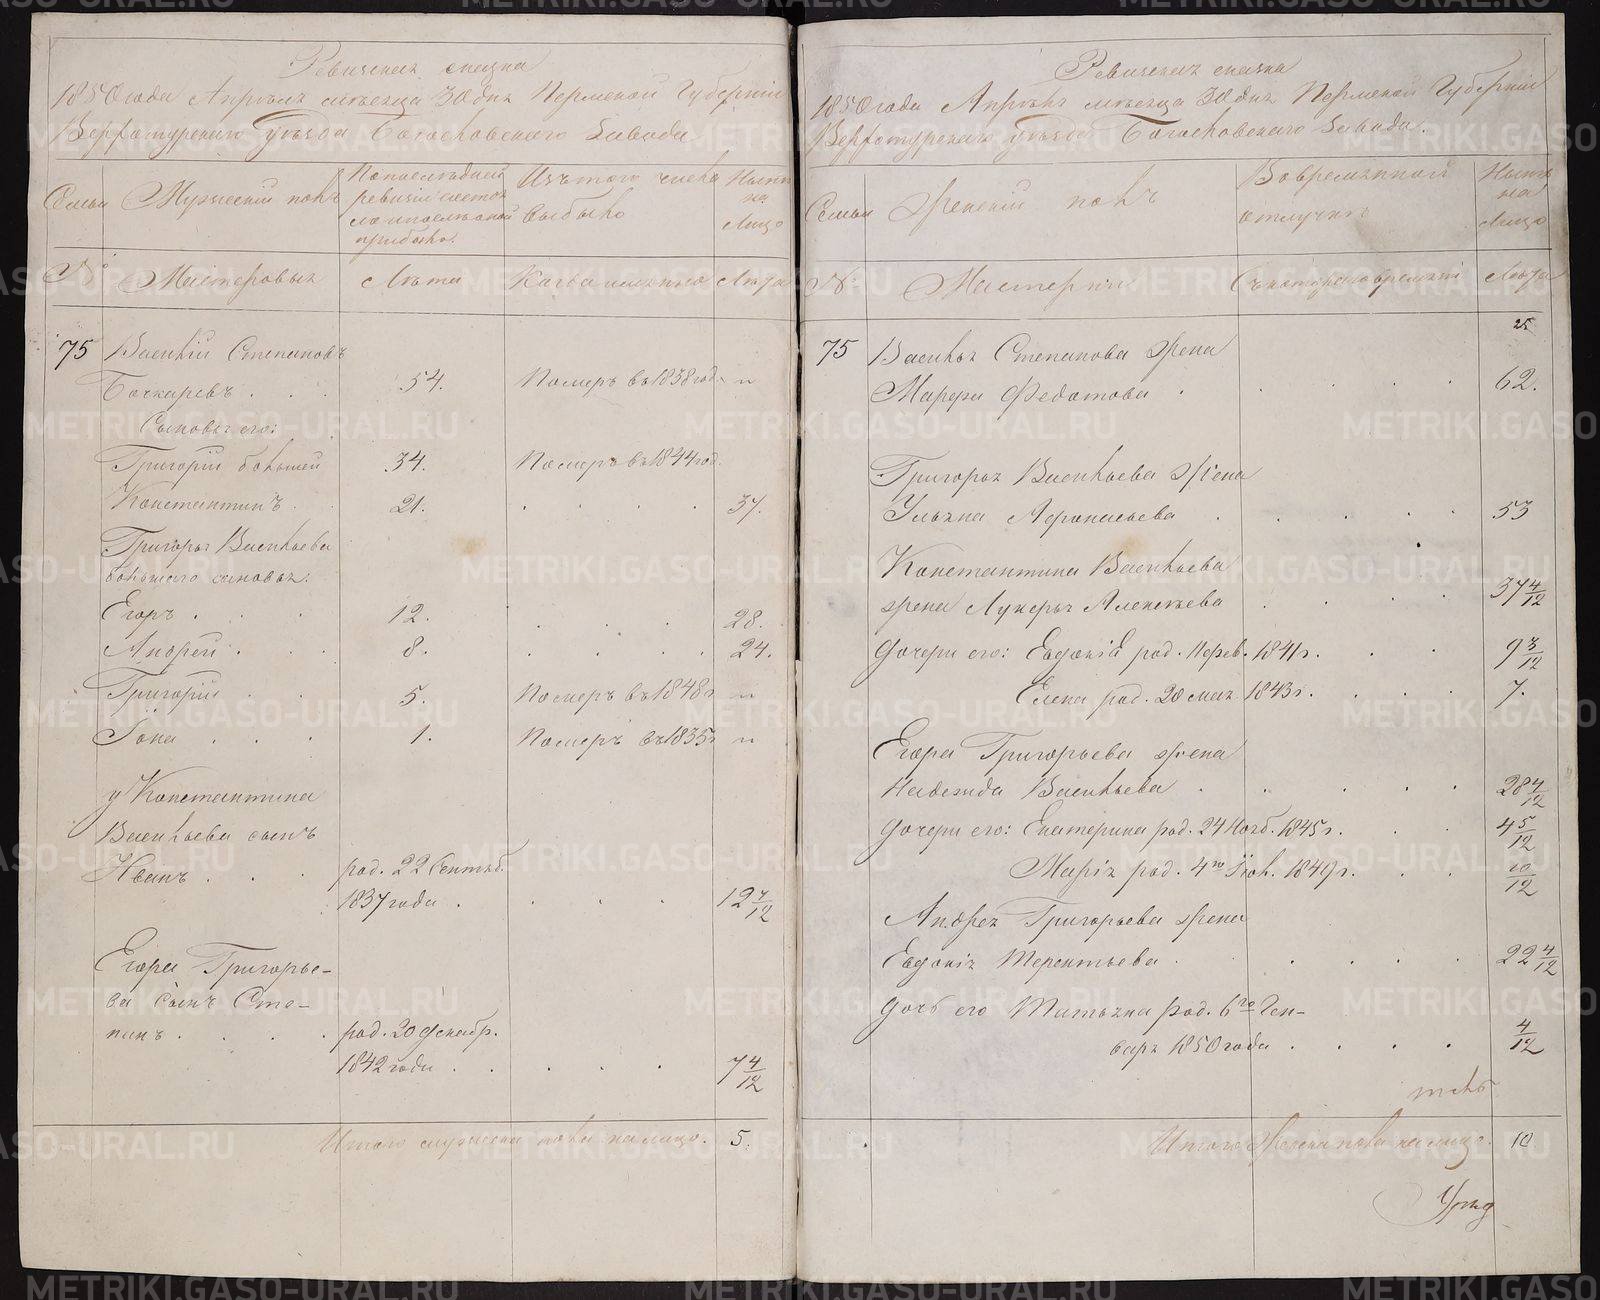 Ревизская сказка
1850 года Апреля месяца 30 дня Пермской Губернии
Верхотурского уѣзда Богословского Завода
Семьи
Мужеский полъ
По последней
ревизии состоя
ло и после оной
прибыло.
Изъ того числа
выбыло
Ныне
на
лицо
№
Мастеровыхъ
Лѣта
Когда именно
Лѣта
75 Василий Степановъ
Бочкаревъ . . 54. Померъ въ 1838 год. „
Сыновья его:
Григорий большей 34. Померъ въ 1844 год.
Константинъ . 21. . . . . 37.
Григорья Васильева
большаго сыновья:
Егоръ . . . 12. . . . . 28.
Андрей . . . 8. . . . . 24.
Григорий . . 5. Померъ въ 1848 г „
Iона . . . 1. Померъ въ 1835 г „
у Константина
Васильева сынъ
Иванъ . . . род. 22 Сентяб.
1837 года . . . . 12 7/12
Егора Григорье-
ва сынъ Сте-
панъ . . . . род. 20 декабр.
1842 года . . . . 7 4/12
Итого мужеска пола на лицо. 5.
Ревизская сказка
1850 года Апреля месяца 30 дня Пермской Губернии
Верхотурского уѣзда Богословского Завода.
Семьи
Женский полъ
Во временной
отлучке
Ныне
на
лицо
№
Мастерия
Съ которого времяни
Лѣта
25
75 Василья Степанова жена
Марфа Федотова . . . . . 62.
Григорья Васильева жена
Ульяна Афонасьева . . . . . 53
Константина Васильева
жена Лукерья Алексеева . . . . 37 4/12
дочери его: Евдокия род. 1841 г. . . 9 3/12
Елена род. 20 мая 1843 г. . . . 7.
Егора Григорьева жена
Надежда Васильева . . . . . 28 4/12
дочери его: Екатерина род. 24 Нояб. 1845 г. . . 4 5/12
Мария род. 4го Iюл. 1849 г. . . 10/12
Андрея Григорьева жена
Евдокия Терентьева . . . . . 22 4/12
дочь его Татьяна род. 6го Ген-
варя 1850 года . . . . 4/12
Итого женска пола на лицо. 10